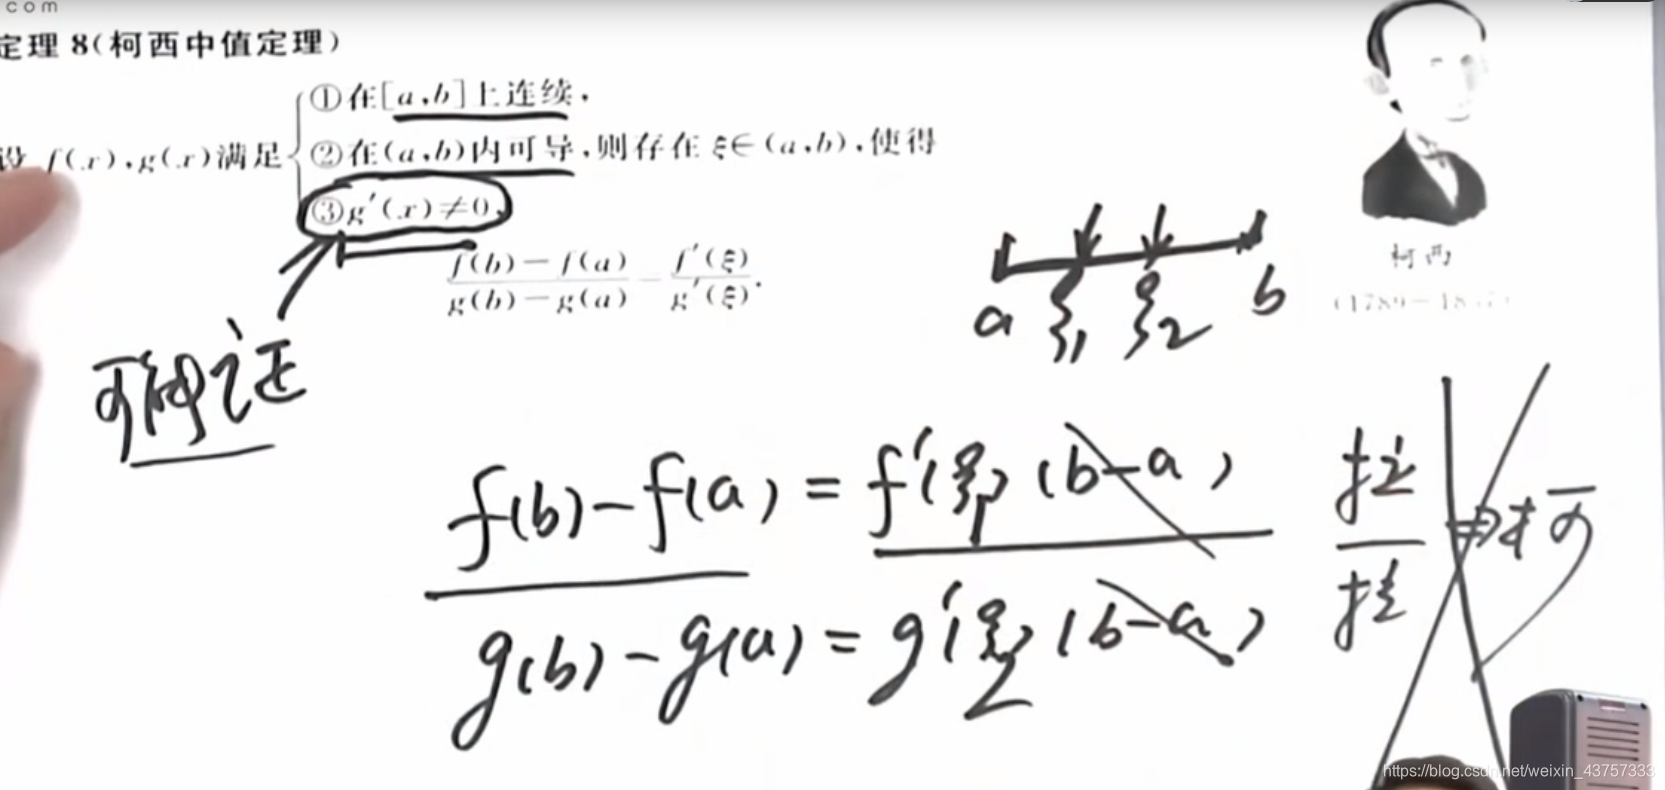 com
定理 8(柯西中值定理)
①在[a,b]上连续,
设 f(x),g(x)满足 ②在(a,b)内可导,则存在 ξ∈(a,b),使得
③g′(x)≠0,
f(b)-f(a) / g(b)-g(a) = f′(ξ) / g′(ξ).
a ξ1 ξ2 b
柯西
f(b)-f(a) = f′(ξ1)(b-a)
g(b)-g(a) = g′(ξ2)(b-a)
拉
拉
⇒ 柯
https://blog.csdn.net/weixin_43757333